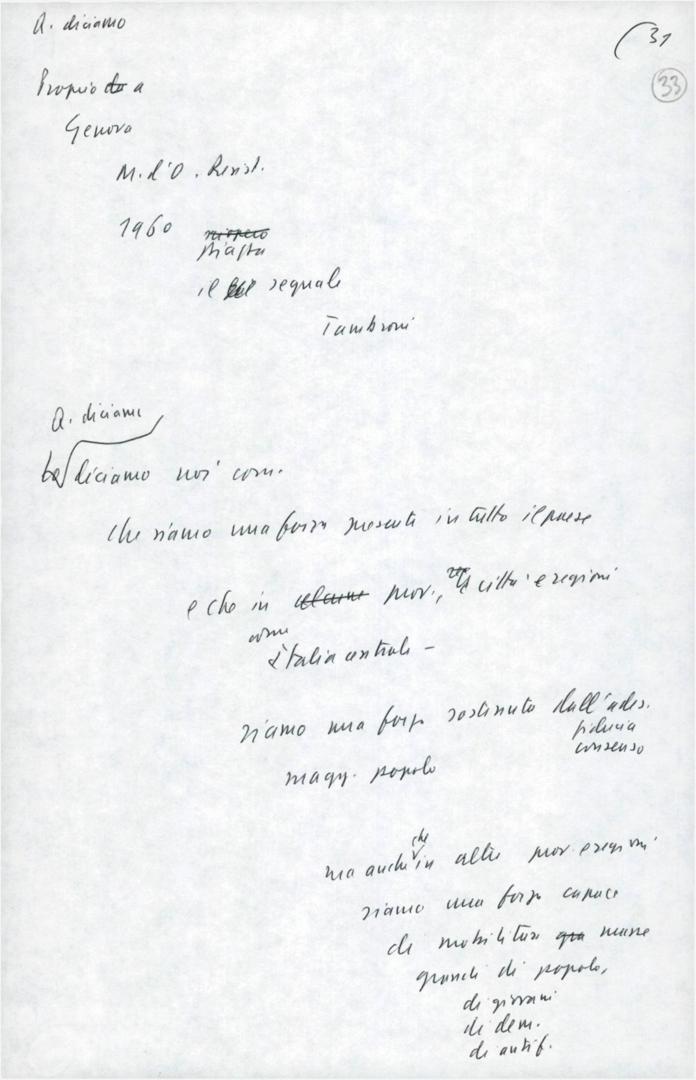 a. diciamo
(31
33
Proprio da a
Genova
M. d'O. Resist.
1960
partì
il segnale
Tambroni
a. diciamo
diciamo noi com.
che siamo una forza presente in tutto il paese
e che in alcune prov., città e regioni
come
Italia centrale –
siamo una forza sostenuta dall'ades.
fiducia
consenso
magg. popolo
che
ma anche in altre prov. e regioni
siamo una forza capace
di mobilitare masse
grandi di popolo,
di giovani
di dem.
di antif.